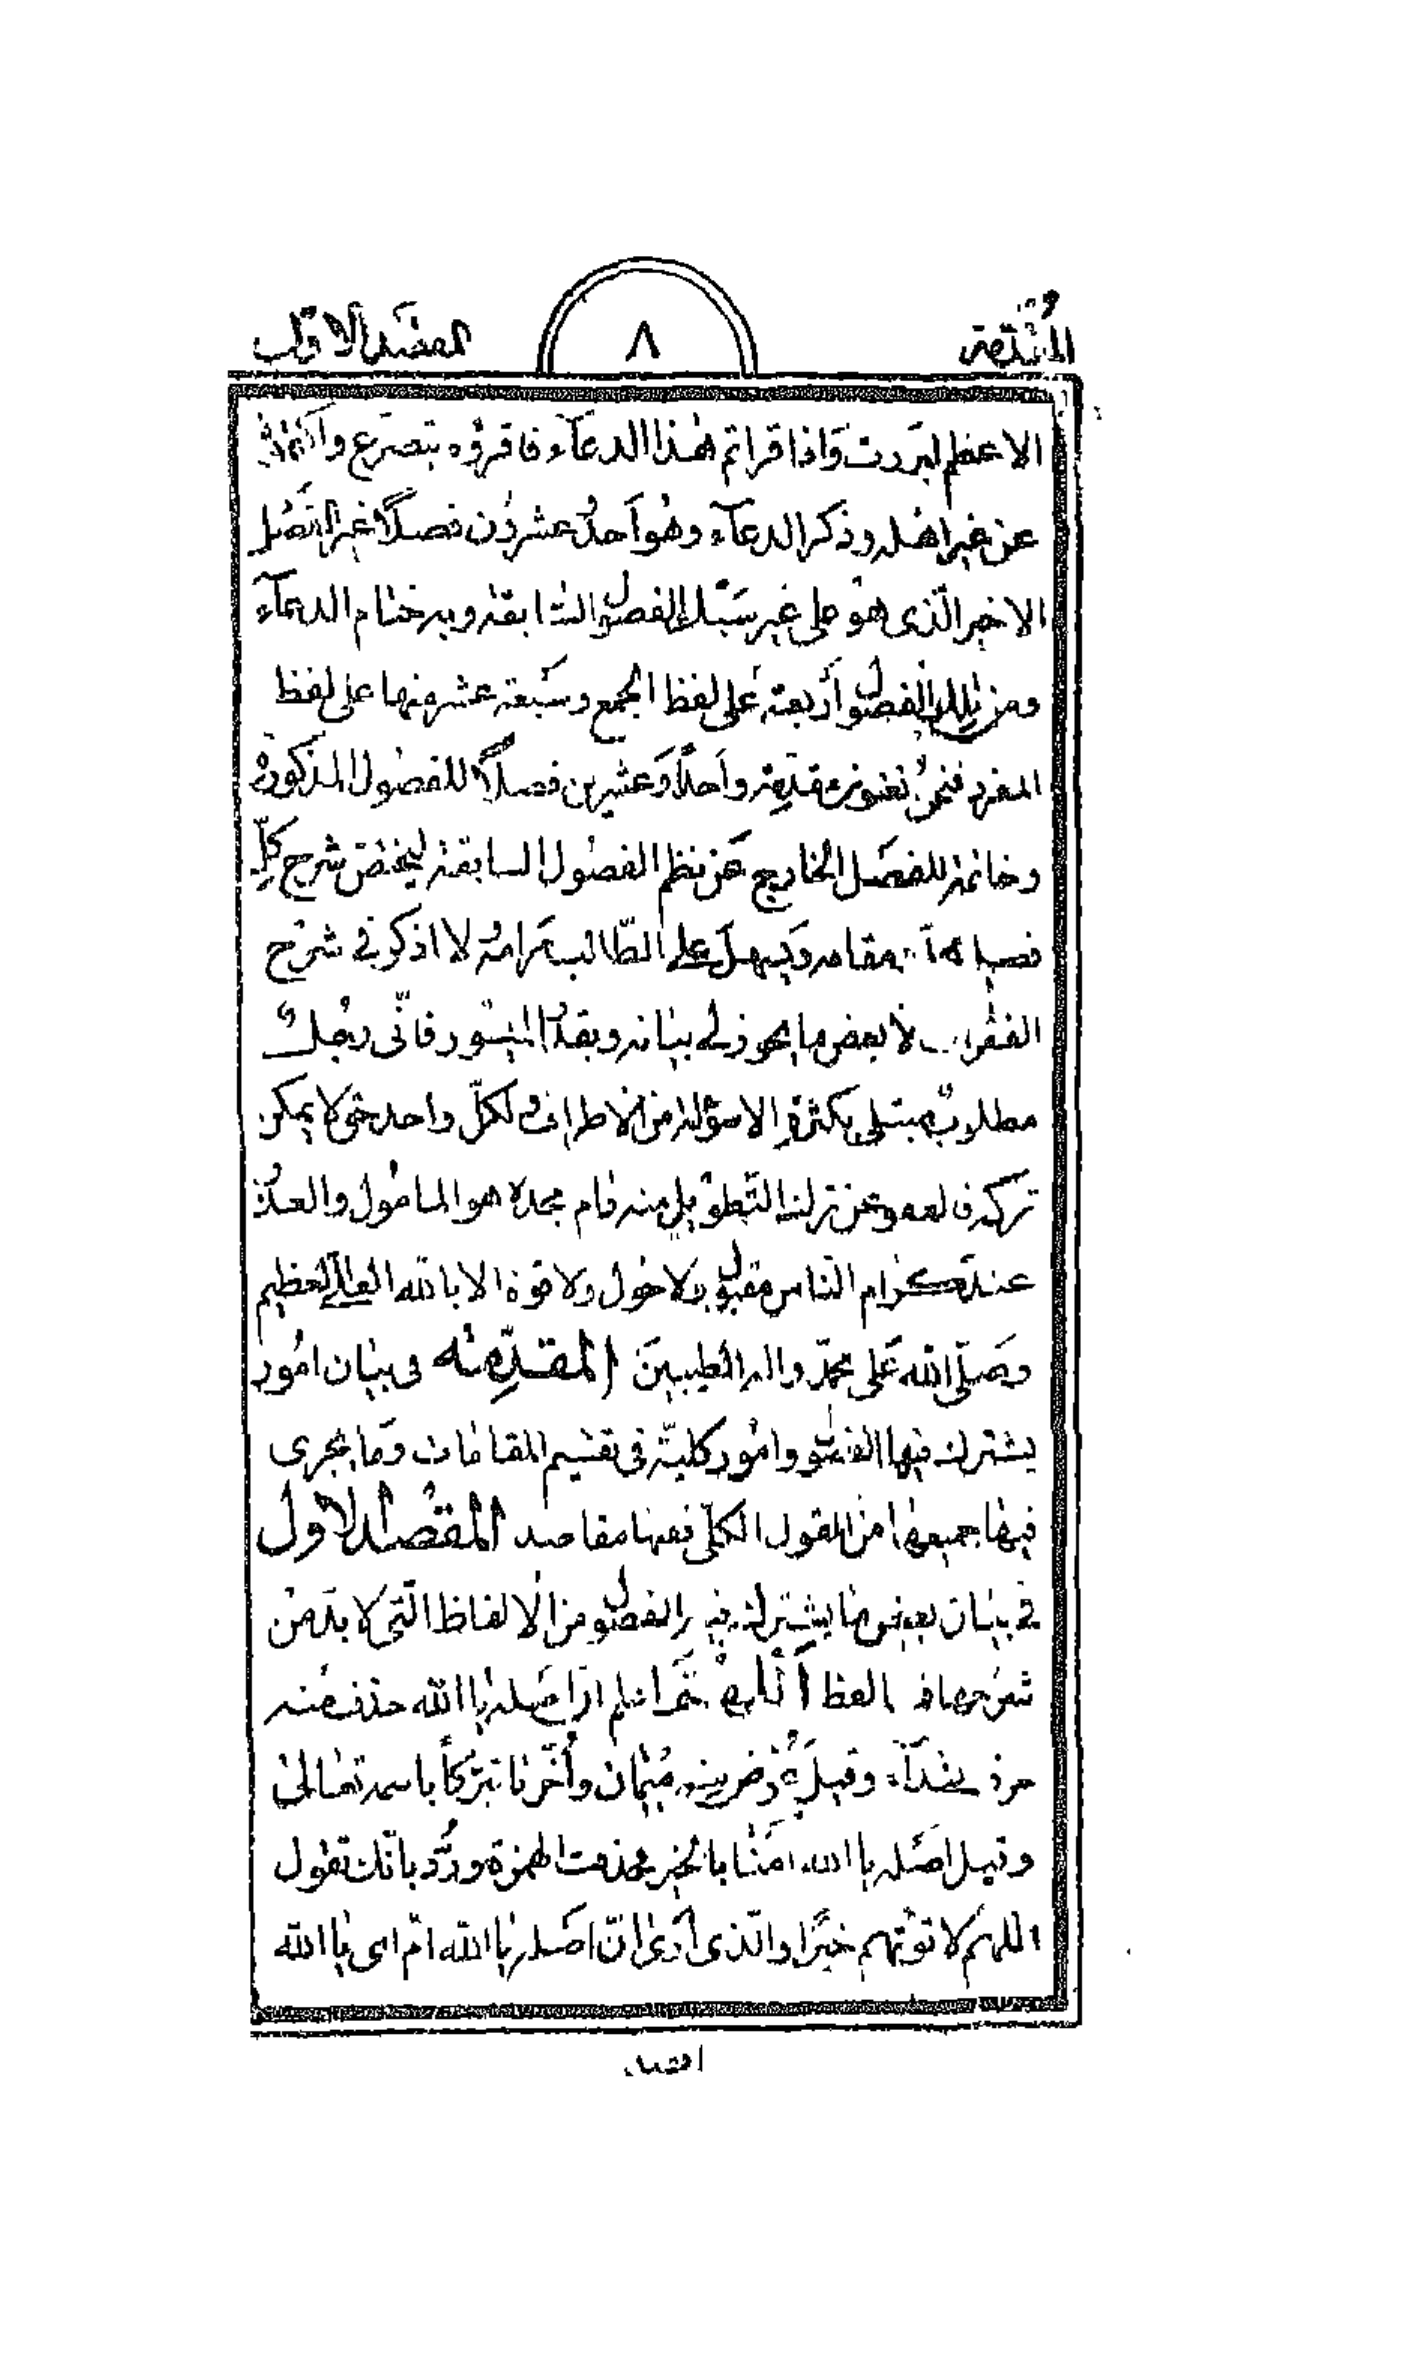 المقدمة
٨
المقصد الاول
الاعظم لبررت واذا قراتم هذا الدعآء فاقرؤه بتضرع واكتموه
عن غير اهله وذكر الدعآء وهو احد وعشرون فصلًا غير الفصل
الاخير الذى هو على غير سبك الفصول السابقة وبه ختام الدعآء
ومن تلك الفصول أربعة على لفظ الجمع وسبعة عشر منها على لفظ
المفرد فنحن نعنون مقدمة واحدًا وعشرين فصلًا للفصول المذكورة
وخاتمة للفصل الخارج عن نظم الفصول السابقة ليختص شرح كلّ
مقامه ويسهل على الطّالب مرامه لا اذكر فى شرح
بعض ما يجوز لى بيانه وبقدر الميسور فانّى رجلٌ
مطلوبٌ مبتلى بكثرة الاسؤلة من الاطراف ولكلّ واحد حق لا يمكن
تركه فالعفو عن ترك التّطويل منه دام مجده هو المامول والعذر
عند كرام النّاس مقبول ولا حول ولا قوة الا بالله العلى العظيم
وصلّى الله على محمّد واله الطيبين المقدّمة فى بيان امور
يشترك فيها الفصول وامور كليّة فى تقسيم المقامات وما يجرى
فيها جميعها من القول الكلّى ففيها مقاصد المقصد الاول
فى بيان بعض ما يشترك فيه الفصول من الالفاظ الّتى لا بد من
شرحها لفظ اللهمّ اعلم انّ اصله يا الله حذف منه
حرف النّدآء وقيل عُوّض عنه ميمان وأخّرنا تبرّكًا باسمه تعالى
وقيل اصله يا الله امّنا بالخير فحذفت الهمزة ورُدّ بانّك تقول
اللهمّ لا تؤتهم خيرًا والّذى أرى انّ اصله يا الله امّ اى يا الله
اقصد